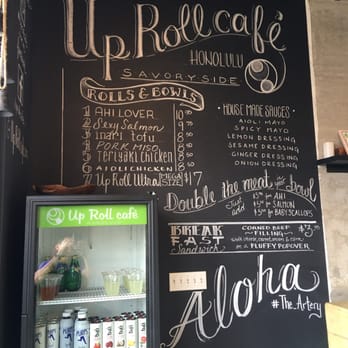 Up Roll café
HONOLULU
SAVORY SIDE
ROLLS & BOWLS
1 AHI LOVER
2 Sexy Salmon
3 inari tofu
4 PORK MISO
5 Teriyaki chicken
6 AIOLI CHICKEN
7 Up Roll Ultra MEGA SIZE $17
HOUSE MADE SAUCES
AIOLI MAYO
SPICY MAYO
LEMON DRESSING
SESAME DRESSING
GINGER DRESSING
ONION DRESSING
Double the meat in your Bowl
Just add
for AHI
for SALMON
for BABY SCALLOPS
BREAKFAST
Sandwich
CORNED BEEF
FILLING
on a FLUFFY POPOVER
Aloha
#The_Artery
Up Roll café
HONOLULU